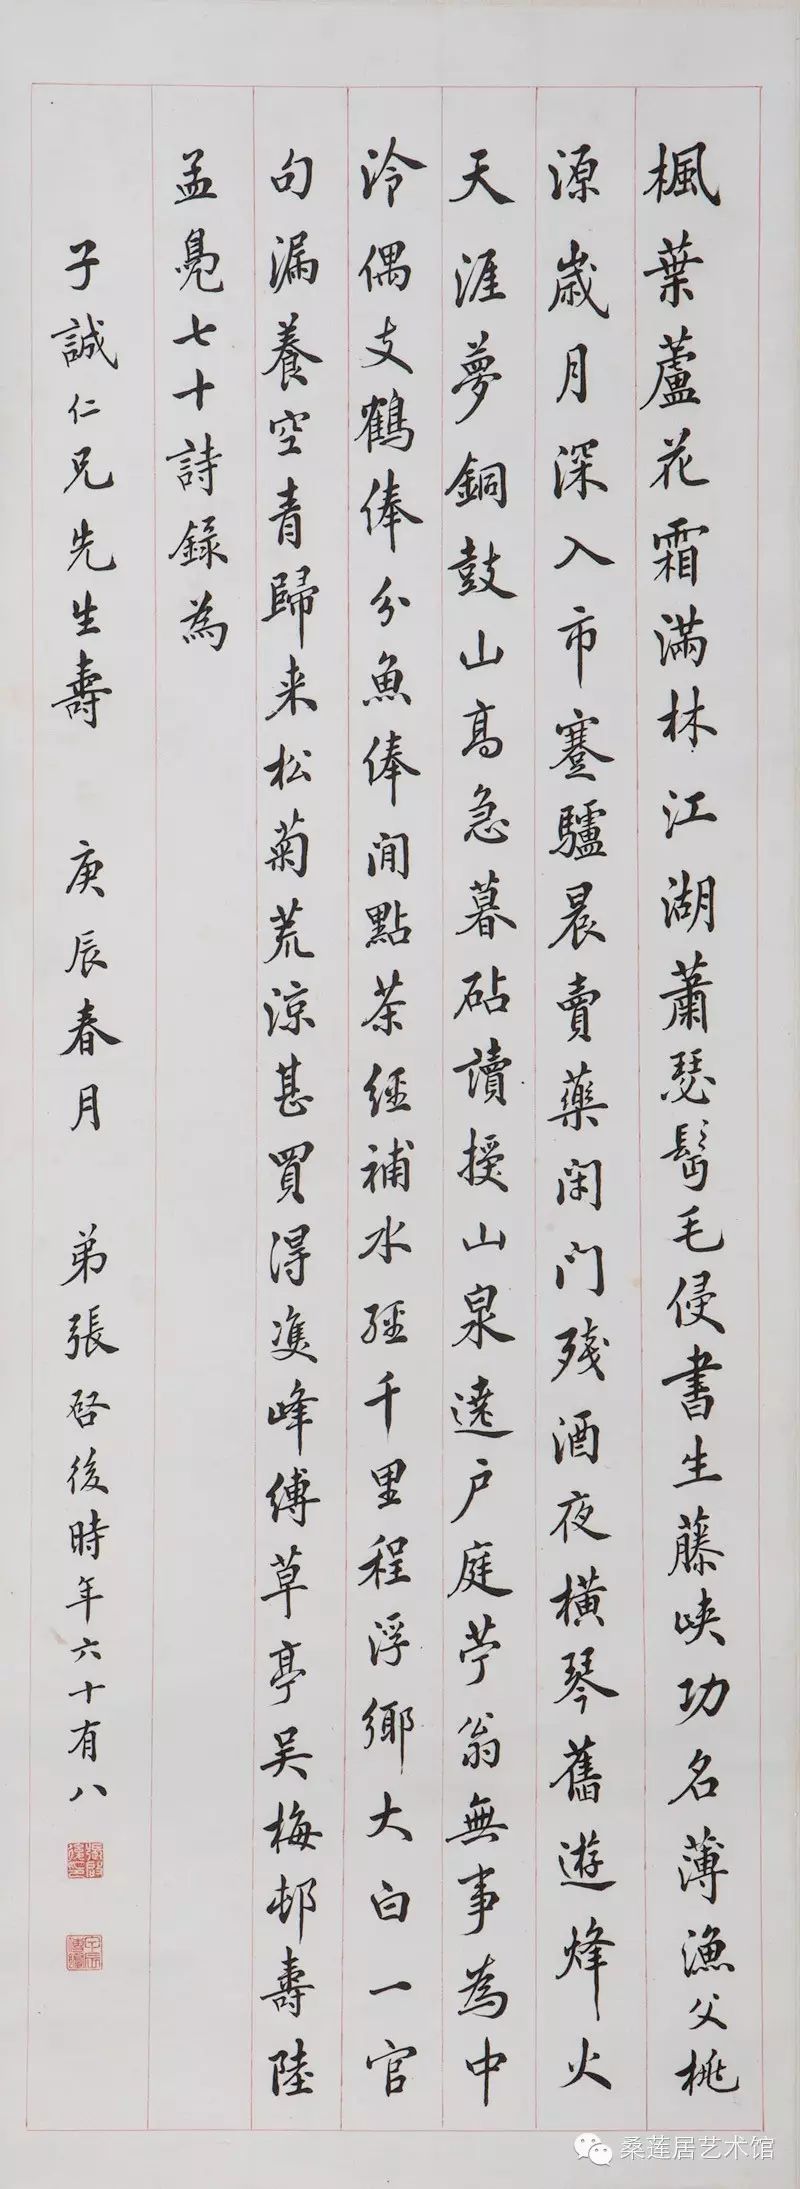 楓葉蘆花霜滿林江湖蕭瑟髩毛侵書生藤峽功名薄漁父桃
源歲月深入市蹇驢晨賣藥閑門殘酒夜橫琴舊遊烽火
天涯夢銅鼓山高急暮砧讀授山泉遶戶庭苧翁無事為中
泠偶支鶴俸分魚俸閒點茶經補水經千里程浮鄉大白一官
句漏養空青歸来松菊荒涼甚買得雙峰縛草亭吴梅邨壽陸
孟鳧七十詩錄為
子誠仁兄先生壽 庚辰春月 弟張啓後時年六十有八
桑莲居艺术馆